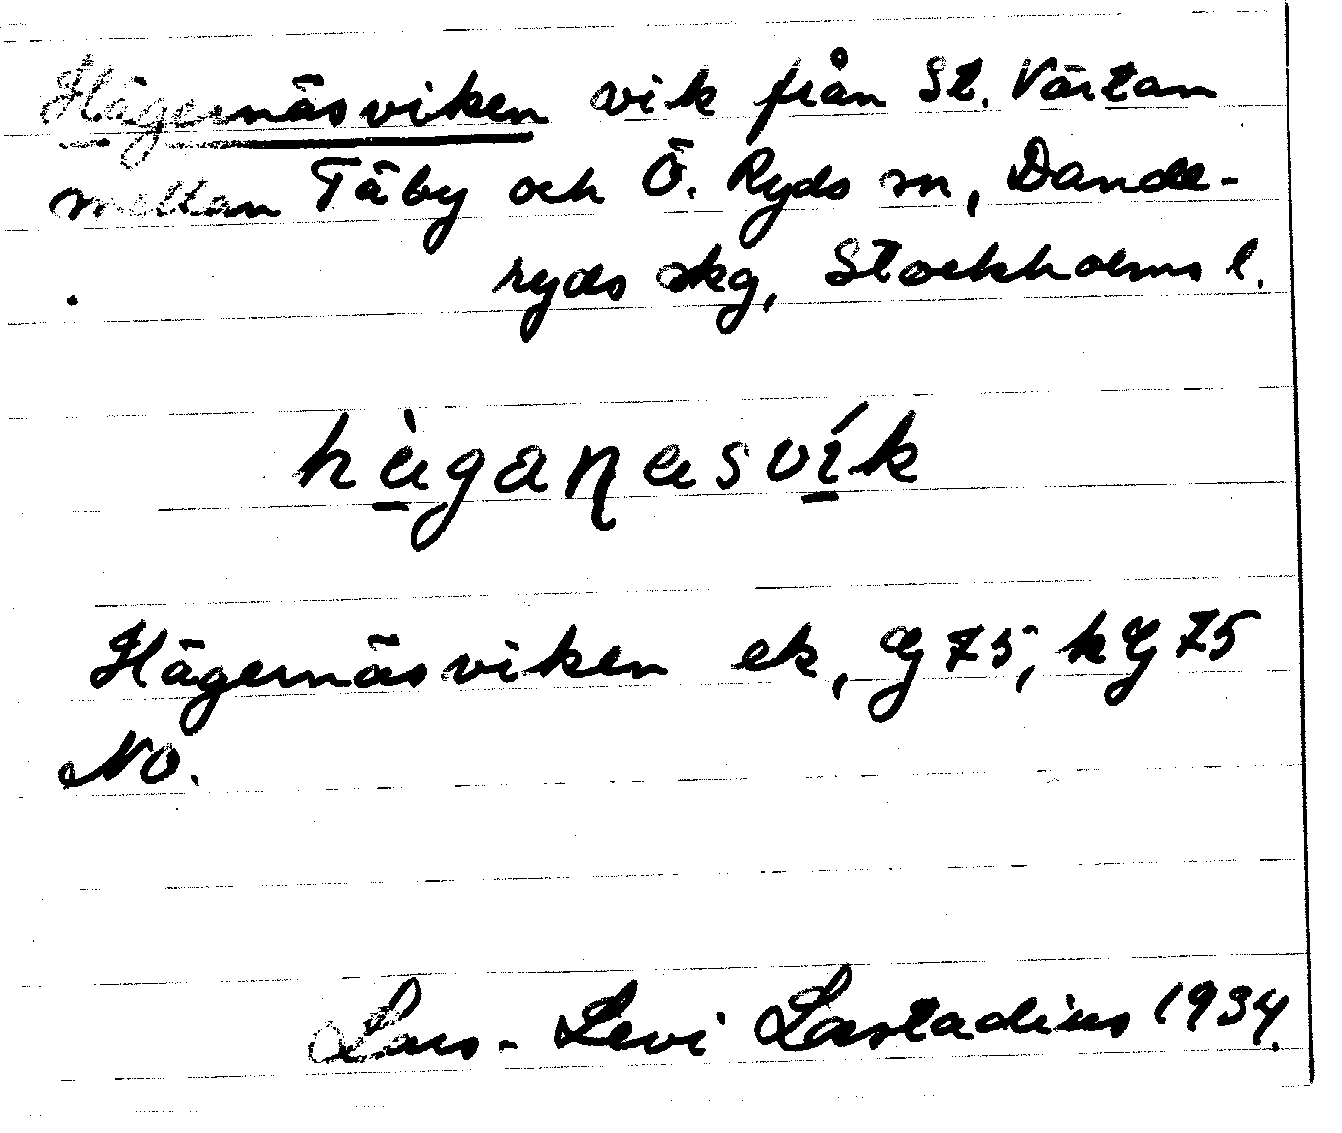 Hägernäsviken vik från St. Värtan
mellan Täby och Ö. Ryds sn, Dande-
ryds skg, Stockholms l.
hä̀gaɳesvík
Hägernäsviken ek, G 75, kG 75
NO.
Lars-Levi Læstadius 1934.